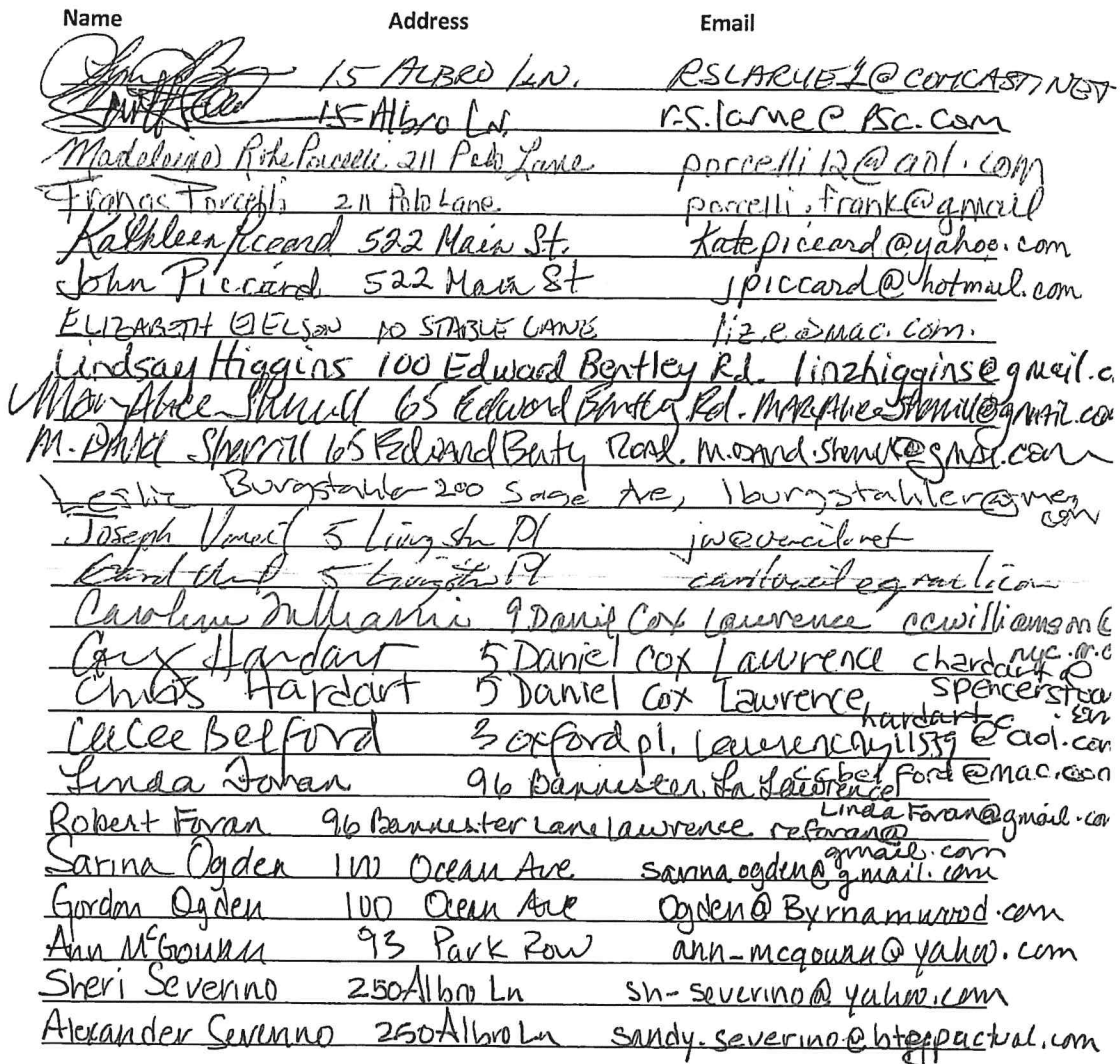 Name Address Email
15 ALBRO LN. RSLARUE1@COMCAST.NET
15 Albro LN.
211 Polo Lane porcelli12@aol.com
Francis Porcelli 211 Polo Lane. porcelli.frank@gmail
Kathleen Piccard 522 Main St. katepiccard@yahoo.com
John Piccard 522 Main St jpiccard@hotmail.com
ELIZABETH 10 STABLE LANE liz.e@mac.com.
Lindsay Higgins 100 Edward Bentley Rd. linzhiggins@gmail.c
Mary Alice Sherrill 65 Edward Bentley Rd.
M. DAVID Sherrill 65 Edward Bently Road.
Leslie Burgstahler 200 Sage Ave, lburgstahler@me.com
Joseph 5 Livingston Pl
5 Livingston Pl
Caroline 9 Daniel Cox Lawrence
Guy Hardart 5 Daniel Cox Lawrence chardart@
nyc.rr.c
Chris Hardart 5 Daniel Cox Lawrence
hardartc
CeCee Belford 3 oxford pl. Lawrence ny 11559 @aol.com
Linda Foran 96 Bannister Ln Lawrence ccbelford@mac.com
LindaForan@gmail.co
Robert Foran 96 Bannister Lane Lawrence reforan@
gmail.com
Sarina Ogden 100 Ocean Ave sarinaogden@gmail.com
Gordon Ogden 100 Ocean Ave
Ann McGowan 93 Park Row ann-mcgowan@yahoo.com
Sheri Severino 250 Albro Ln sh-severino@yahoo.com
Alexander Severino 250 Albro Ln sandy.severino@btgpactual.com